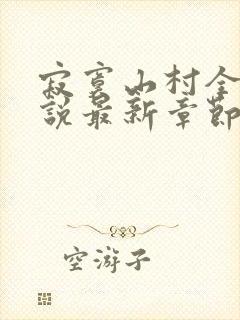 寂寞山村全
說最新章節
空游子